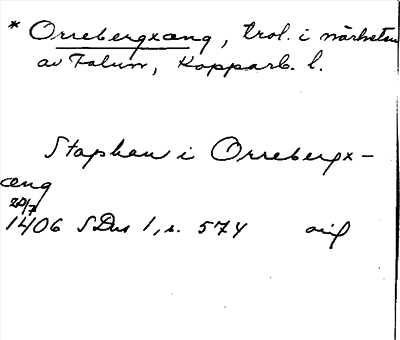 * Orrebergxæng, trol. i närheten
av Falun, Kopparb. l.
Staphan i Orrebergx-
æng
20/7
1406 SDns 1, s. 574 orig